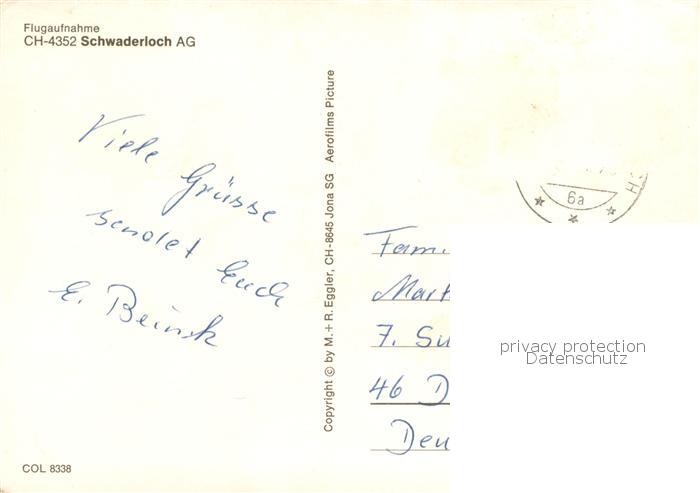 Flugaufnahme
CH-4352 Schwaderloch AG
Viele
Grüsse
sendet Euch
E.
Copyright © by M. + R. Eggler, CH-8645 Jona SG Aerofilms Picture
6a
Fam.
7. Su
46 D
Deu
privacy protection
Datenschutz
COL 8338